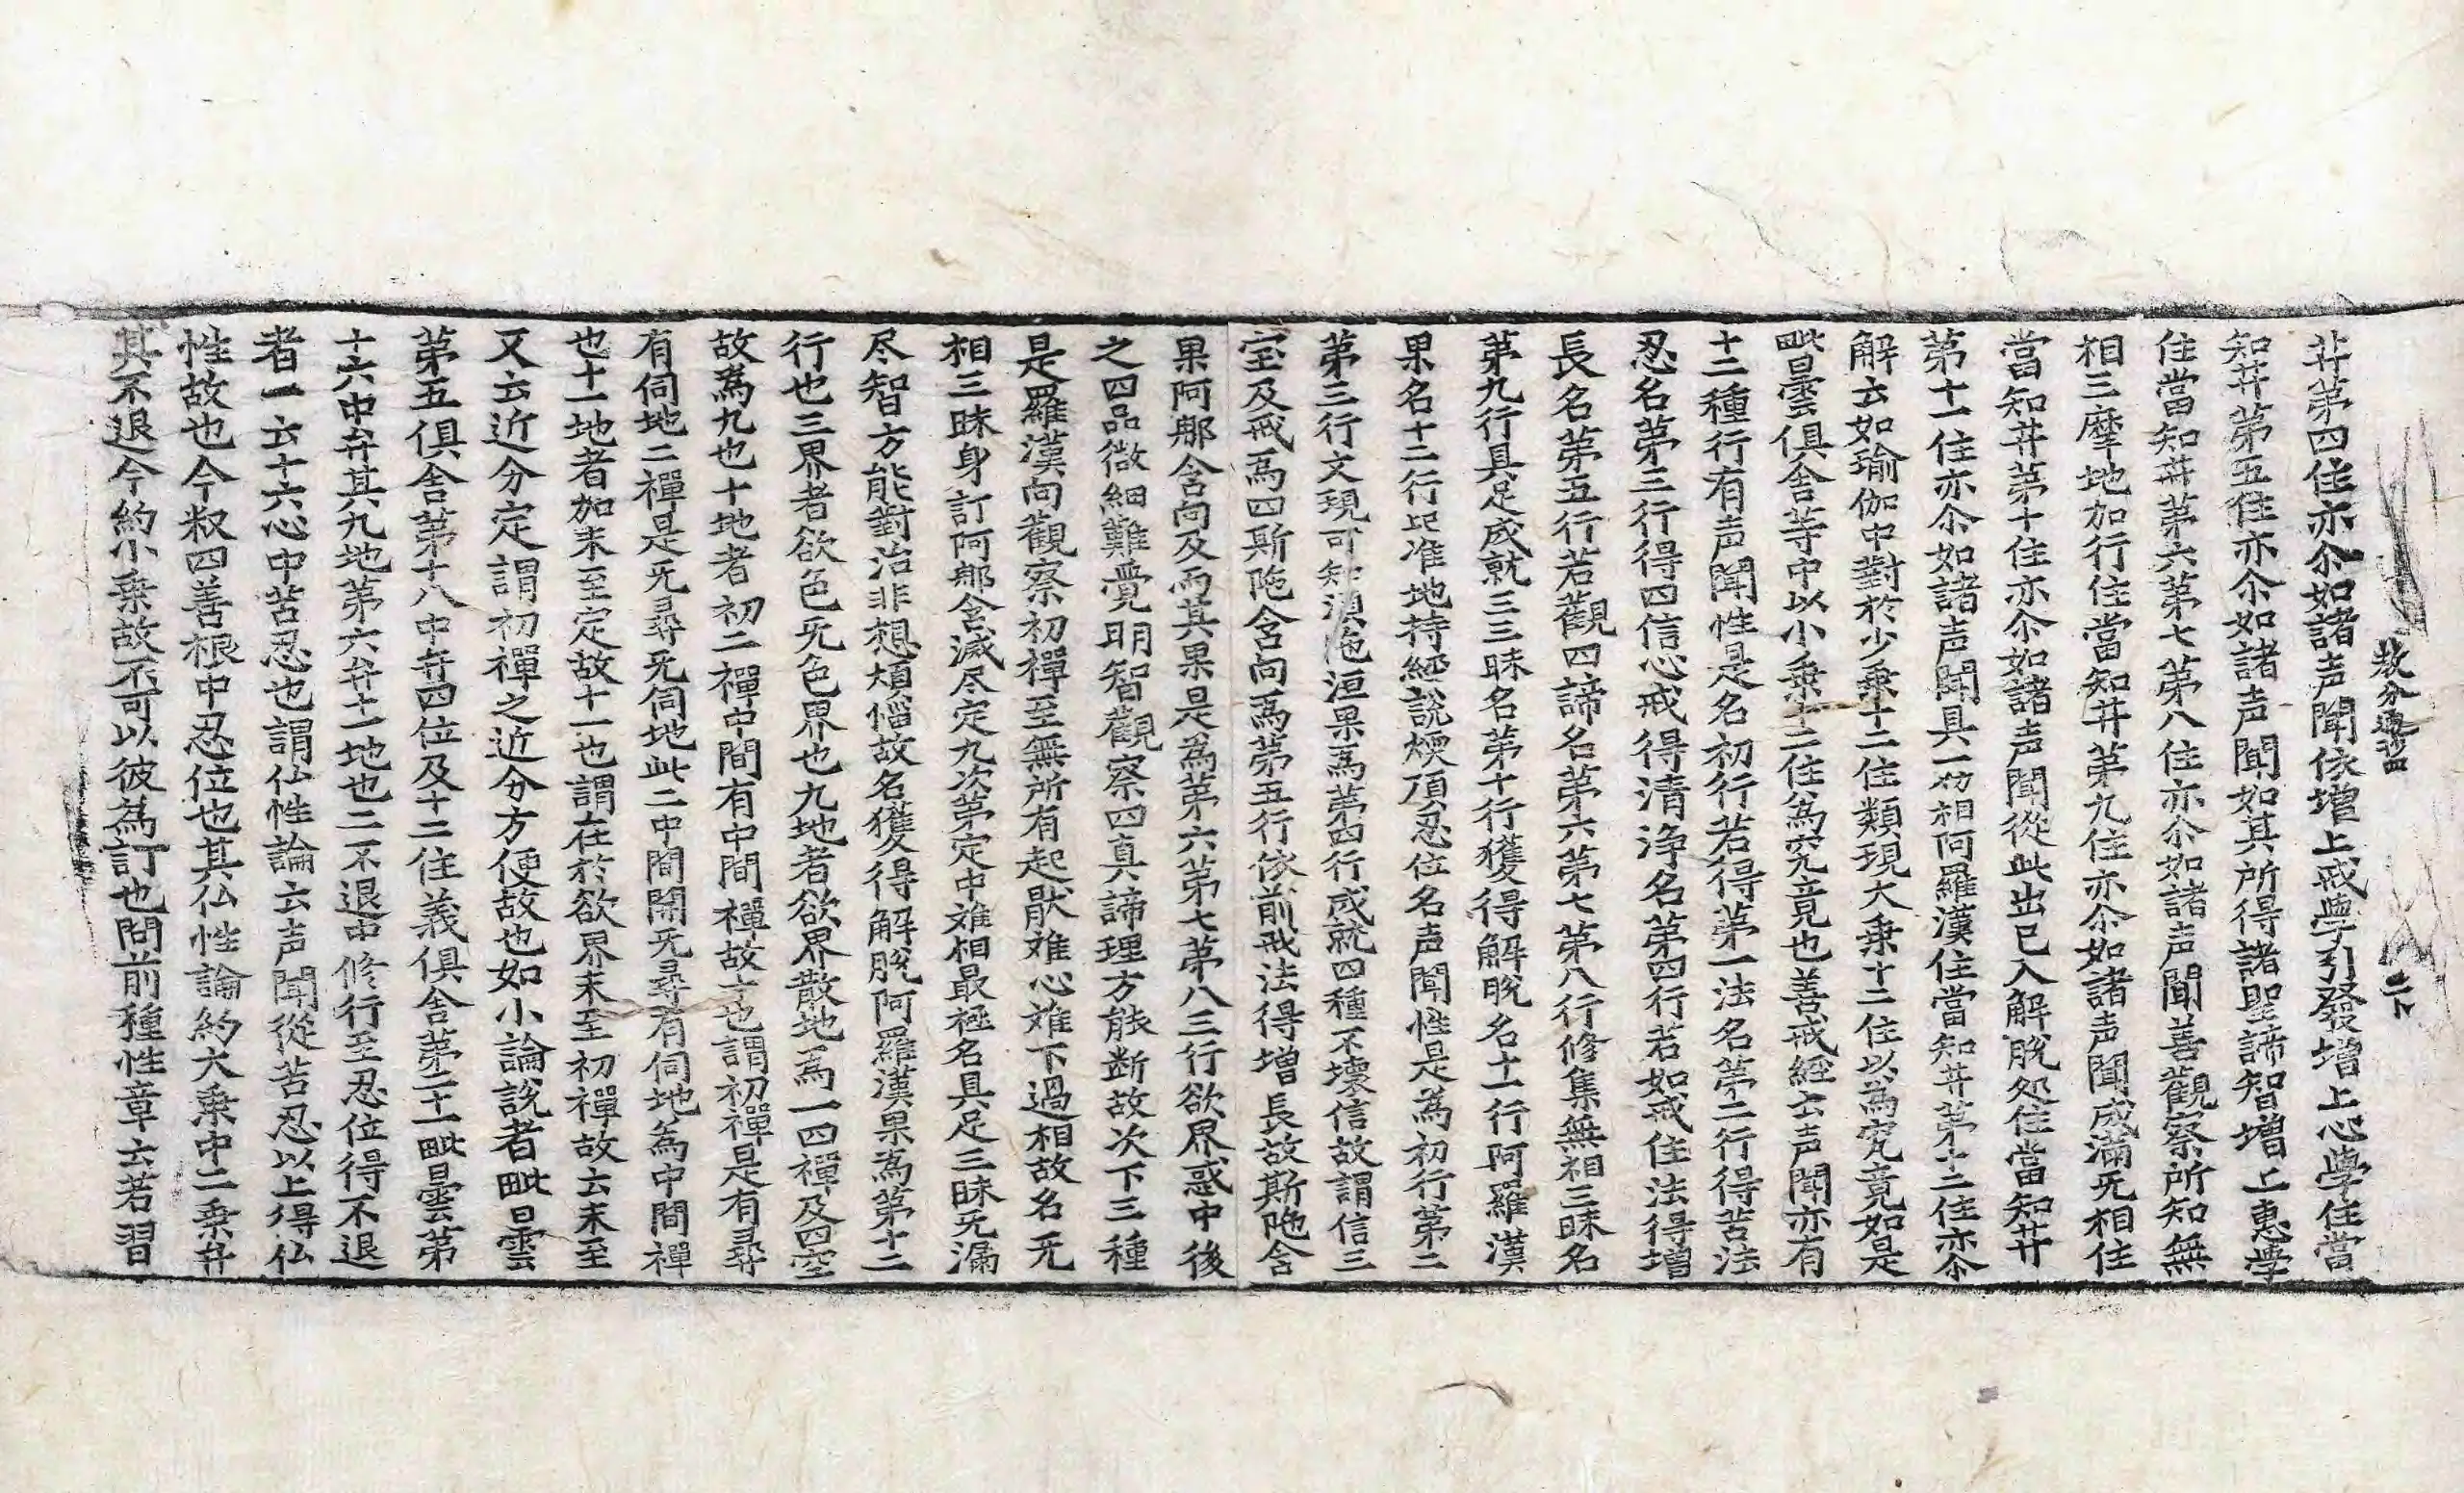 教分通沙四
二卜
芉第四住亦尒如諸声聞依增上戒學引發增上心學住當
知芉第五住亦尒如諸声聞如其所得諸聖諦智增上惠學
住當知芉第六第七第八住亦尒如諸声聞善觀察所知無
相三摩地加行住當知芉第九住亦尒如諸声聞成滿旡相住
當知芉第十住亦尒如諸声聞從此出已入解脫処住當知芉
第十一住亦尒如諸声聞具一切相阿羅漢住當知芉第十二住亦尒
解云如瑜伽中對於少乗十二住類現大乗十二住以為究竟如是
毗曇俱舍䓁中以小乗十二住為究竟也善戒經云声聞亦有
十二種行有声聞性是名初行若得第一法名第二行得苦法
忍名第三行得四信心戒得清浄名第四行若如戒住法得增
長名第五行若觀四諦名第六第七第八行修集無相三昧名
第九行具足成就三三昧名第十行獲得解脫名十一行阿羅漢
果名十二行记准地持經說煗頂忍位名声聞性是為初行第二
第三行文現可知湏陁洹果爲第四行成就四種不壞信故謂信三
宝及戒爲四斯陁含向爲第五行依前戒法得增長故斯陁含
果阿那含向及而其果是爲第六第七第八三行欲界惑中後
之四品微細難覺明智觀察四真諦理方能断故次下三種
是羅漢向觀察初禪至無所有起猒難心難下過相故名旡
相三昧身訂阿那含滅尽定九次第定中難相最極名具足三昧旡漏
尽智方能對治非想煩惱故名獲得解脫阿羅漢果為第十二
行也三界者欲色旡色界也九地者欲界散地爲一四禪及四空
故爲九也十地者初二禪中間有中間禪故十也謂初禪是有尋
有伺地二禪是旡尋旡伺地此二中間開旡尋有伺地為中間禪
也十一地者加未至定故十一也謂在於欲界末至初禪故云未至
又云近分定謂初禪之近分方便故也如小論說者毗曇
第五俱舍第十八中弁四位及十二住義俱舍第二十一毗曇第
十六中弁其九地第六弁十一地也二不退中修行至忍位得不退
者一云十六心中苦忍也謂仏性論云声聞從苦忍以上得仏
性故也今叙四善根中忍位也其仏性論約大乗中二乗弁
其不退今約小乗故不可以彼為訂也問前種性章云若習